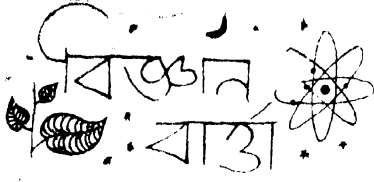 বিজ্ঞান
বার্ত্তা